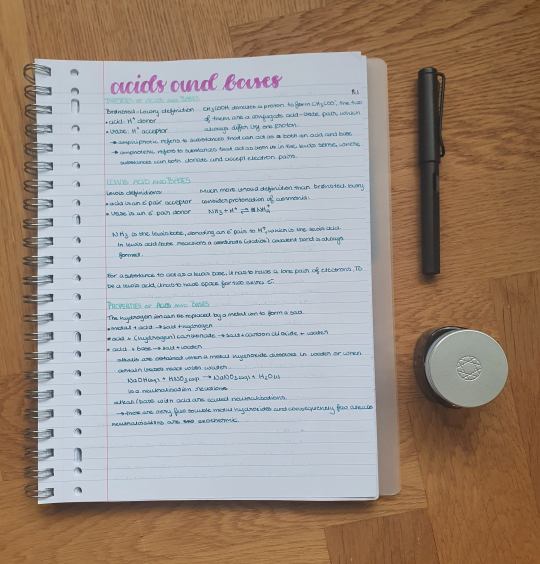 acids and bases
8.1
THEORIES OF ACIDS AND BASES
Brønsted-Lowry definition CH₃COOH donates a proton to form CH₃COO⁻, the two
• acid: H⁺ donor of them are a conjugate acid-base pair, which
• base: H⁺ acceptor always differ by one proton.
→ amphiprotic refers to substances that can act as both an acid and base
→ amphoteric refers to substances that act as both in the Lewis sense, where
substances can both donate and accept electron pairs.
LEWIS ACID AND BASES
Lewis definitions: Much more broad definition than Brønsted-Lowry
• acid is an e⁻ pair acceptor consider protonation of ammonia:
• base is an e⁻ pair donor NH₃ + H⁺ ⇌ NH₄⁺
NH₃ is the Lewis base, donating an e⁻ pair to H⁺, which is the Lewis acid.
In Lewis acid/base reactions a coordinate (dative) covalent bond is always
formed.
For a substance to act as a Lewis base, it has to have a lone pair of electrons. TO
be a Lewis acid, it has to have space for two extra e⁻.
PROPERTIES OF ACIDS AND BASES
The hydrogen ion can be replaced by a metal ion to form a salt.
• metal + acid → salt + hydrogen
• acid + (hydrogen) carbonate → salt + carbon dioxide + water
• acid + base → salt + water
alkalis are obtained when a metal hydroxide dissolves in water or when
certain bases react with water.
NaOH(aq) + HNO₃(aq) → NaNO₃(aq) + H₂O(l)
is a neutralisation reaction
alkali/base with acid are called neutralisations.
→ there are very few soluble metal hydroxides and consequently few alkalis
neutralisations are exothermic.